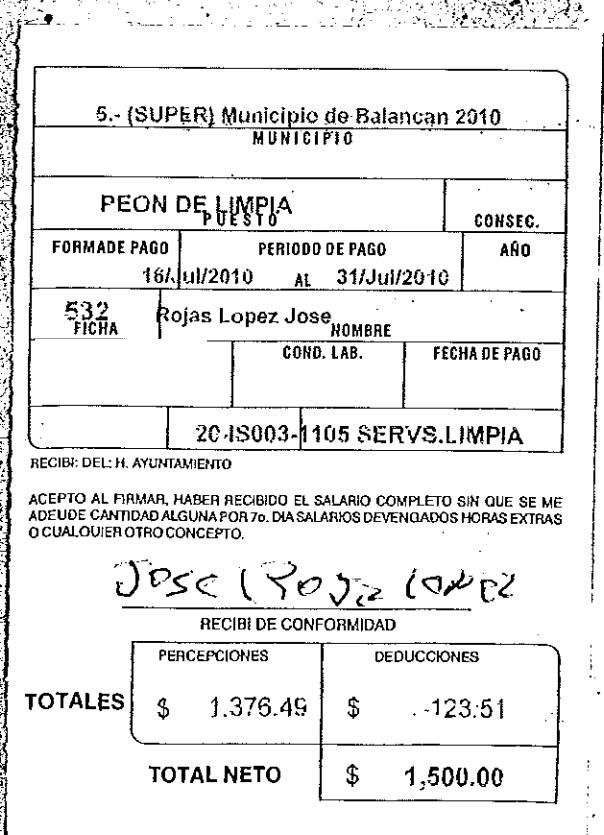 5.- (SUPER) Municipio de Balancan 2010
MUNICIPIO
PEON DE LIMPIA
PUESTO
CONSEC.
FORMADE PAGO PERIODO DE PAGO AÑO
16/Jul/2010 AL 31/Jul/2010
532 Rojas Lopez Jose
FICHA NOMBRE
COND. LAB. FECHA DE PAGO
20-IS003-1105 SERVS.LIMPIA
RECIBI: DEL: H. AYUNTAMIENTO
ACEPTO AL FIRMAR, HABER RECIBIDO EL SALARIO COMPLETO SIN QUE SE ME
ADEUDE CANTIDAD ALGUNA POR 7o. DIA SALARIOS DEVENGADOS HORAS EXTRAS
O CUALQUIER OTRO CONCEPTO.
Jose
RECIBI DE CONFORMIDAD
PERCEPCIONES DEDUCCIONES
TOTALES $ 1,376.49 $ -123.51
TOTAL NETO $ 1,500.00